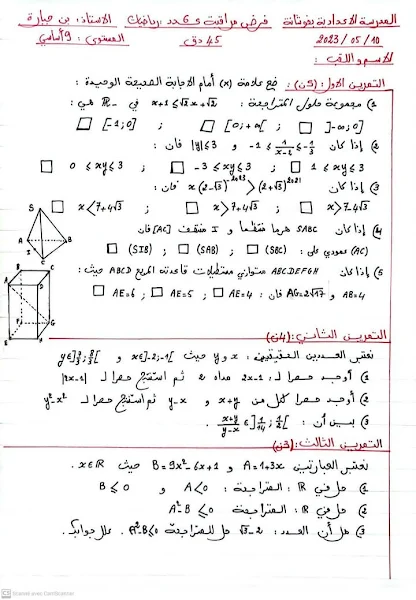 المدرسة الإعدادية بفوشانة فرض مراقبة عـ6ـدد رياضيات الأستاذ: بن جبارة
2023 / 05 / 10 45 دق المستوى: 9 أساسي
الاسم واللقب:
التمرين الأول: (5ن): ضع علامة (x) أمام الإجابة الصحيحة الوحيدة:
1) مجموعة حلول المتراجحة: x+1≤√2x+√2 في ℝ_ هي:
□ [-1;0] ; □ [0;+∞[ ; □ ]-∞;0]
2) إذا كان -1≤1/(x-2)≤-1/3 و |y|≤3 فإن:
□ 0≤xy≤3 ; □ -3≤xy≤3 ; □ 1≤xy≤3
3) إذا كان x(2-√3)^-2023>(2+√3)^2021 فإن:
□ x<7+4√3 ; □ x>7+4√3 ; □ x>7-4√3
4) إذا كان SABC هرما منتظما و I منتصف [AC] فإن
(AC) عمودي على: □ (SBC) ; □ (SAB) ; □ (SIB)
5) إذا كان ABCDEFGH متوازي مستطيلات قاعدته المربع ABCD حيث:
AB=4 و AG=2√17 فإن: □ AE=4 ; □ AE=5 ; □ AE=6
S
A
B
I
C
التمرين الثاني: (4ن)
نعتبر العددين الحقيقيين: x و y حيث x∈]-2;-1[ و
1) أوجد حصرا لـ 2x-1 مداه 2 ثم استنتج حصرا لـ |2x-1|
2) أوجد حصرا لكل من x+y و y-x ثم استنتج حصرا لـ y²-x²
3) بين أن:
التمرين الثالث: (3ن)
نعتبر العبارتين A=1+3x و B=9x²-6x+1 حيث x∈ℝ.
1) حل في ℝ: المتراجحة: A<0 و B≤0
2) حل في ℝ المتراجحة: A²-B≤0
3) هل أن العدد: √3-2 حل للمتراجحة A²-B≤0. علل جوابك.
CS Scanned with CamScanner